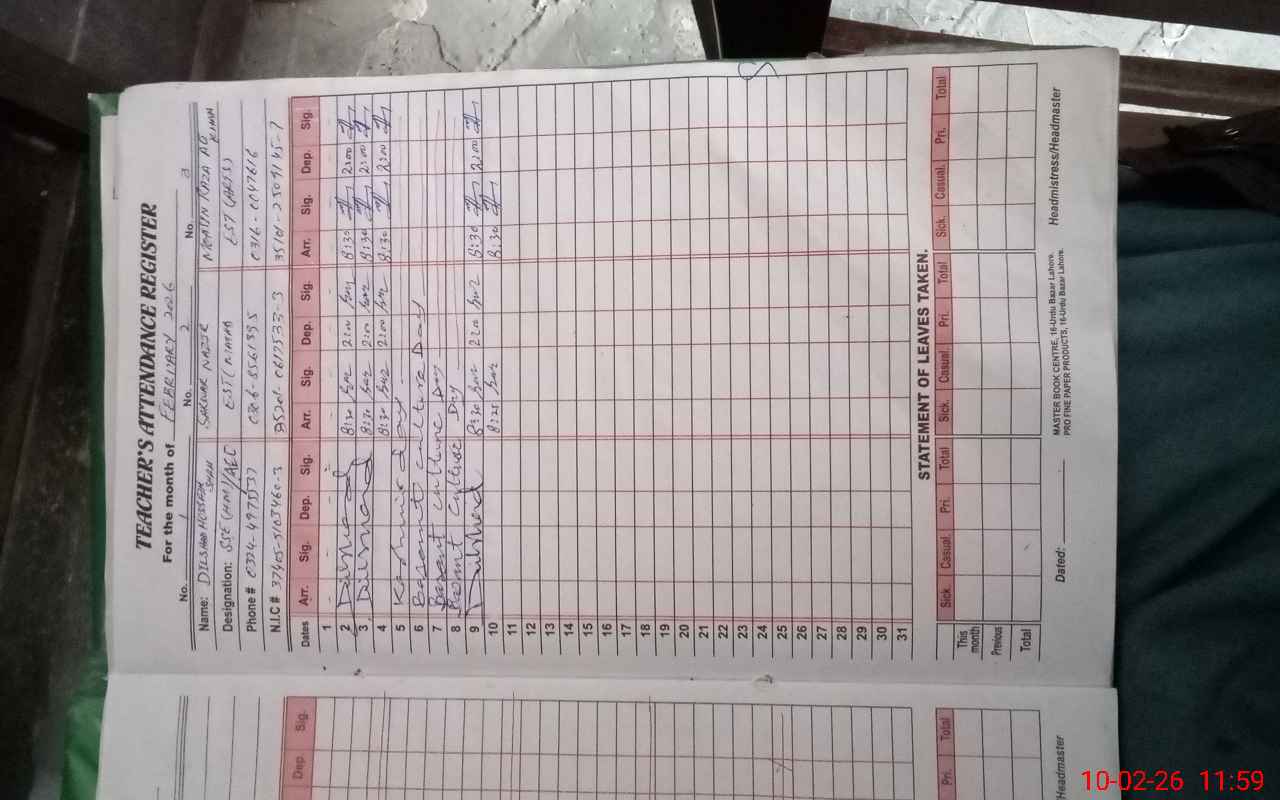 TEACHER'S ATTENDANCE REGISTER
For the month of FEBRUARY 2026
No. 1 No. 2 No. 3
Name: DILSHAD HUSSAIN SHAH SARWAR NAZIR RAZA
Designation: SSE (HM)/AEO EST EST (ARTS)
Phone #
N.I.C #
Dates Arr. Sig. Dep. Sig. Arr. Sig. Dep. Sig. Arr. Sig. Dep. Sig.
1
2 Dilshad 8:30 2:00 8:30 2:00
3 Dilshad 8:30 2:00 8:30 2:00
4 8:30 2:00 8:30 2:00
5 Kashmir day
6 Basant culture Day
7 Basant culture Day
8 Basant Culture Day
9 Dilshad 8:30 2:00 8:30 2:00
10 8:25 8:30
11
12
13
14
15
16
17
18
19
20
21
22
23
24
25
26
27
28
29
30
31
STATEMENT OF LEAVES TAKEN.
Sick. Casual. Pri. Total Sick. Casual. Pri. Total Sick. Casual. Pri. Total
This month
Previous
Total
Dated:
MASTER BOOK CENTRE, 16-Urdu Bazar Lahore.
PRO FINE PAPER PRODUCTS, 16-Urdu Bazar Lahore.
Headmistress/Headmaster
Dep. Sig.
Pri. Total
Headmaster
10-02-26 11:59